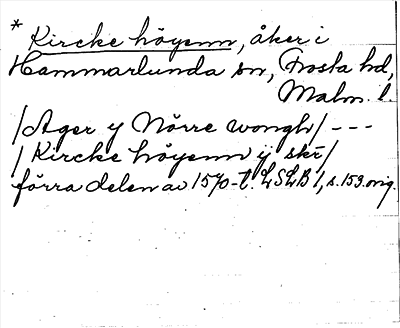 * Kircke höyenn, åker i
Hammarlunda sn, Frosta hd,
Malm. l.
/Ager y Nörre wongh/ ---
/Kircke höyenn ij skr/
förra delen av 1570-t. LSLB 1, s. 153. orig.